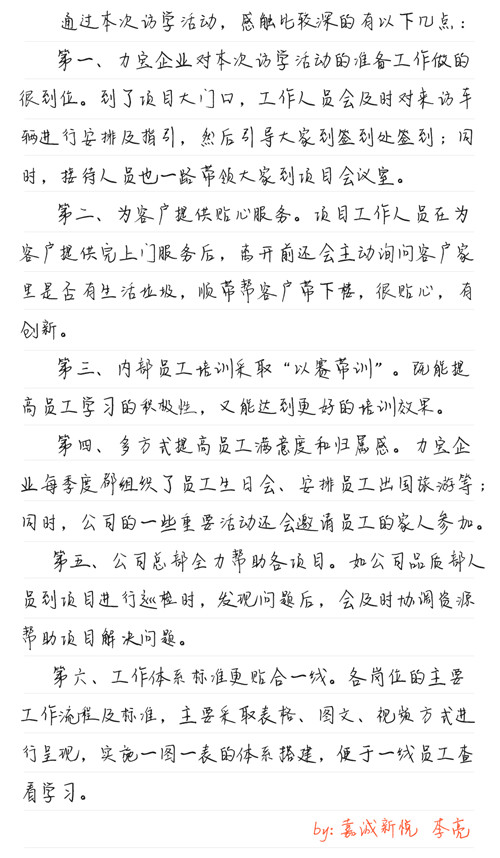 通过本次访学活动，感触比较深的有以下几点：
第一、力宝企业对本次访学活动的准备工作做的
很到位。到了项目大门口，工作人员会及时对来访车
辆进行安排及指引，然后引导大家到签到处签到；同
时，接待人员也一路带领大家到项目会议室。
第二、为客户提供贴心服务。项目工作人员在为
客户提供完上门服务后，离开前还会主动询问客户家
里是否有生活垃圾，顺带帮客户带下楼，很贴心，有
创新。
第三、内部员工培训采取“以赛带训”。既能提
高员工学习的积极性，又能达到更好的培训效果。
第四、多方式提高员工满意度和归属感。力宝企
业每季度都组织了员工生日会、安排员工出国旅游等；
同时，公司的一些重要活动还会邀请员工的家人参加。
第五、公司总部全力帮助各项目。如公司品质部人
员到项目进行巡检时，发现问题后，会及时协调资源
帮助项目解决问题。
第六、工作体系标准更贴合一线。各岗位的主要
工作流程及标准，主要采取表格、图文、视频方式进
行呈现，实施一图一表的体系搭建，便于一线员工查
看学习。
by: 嘉诚新悦 李亮